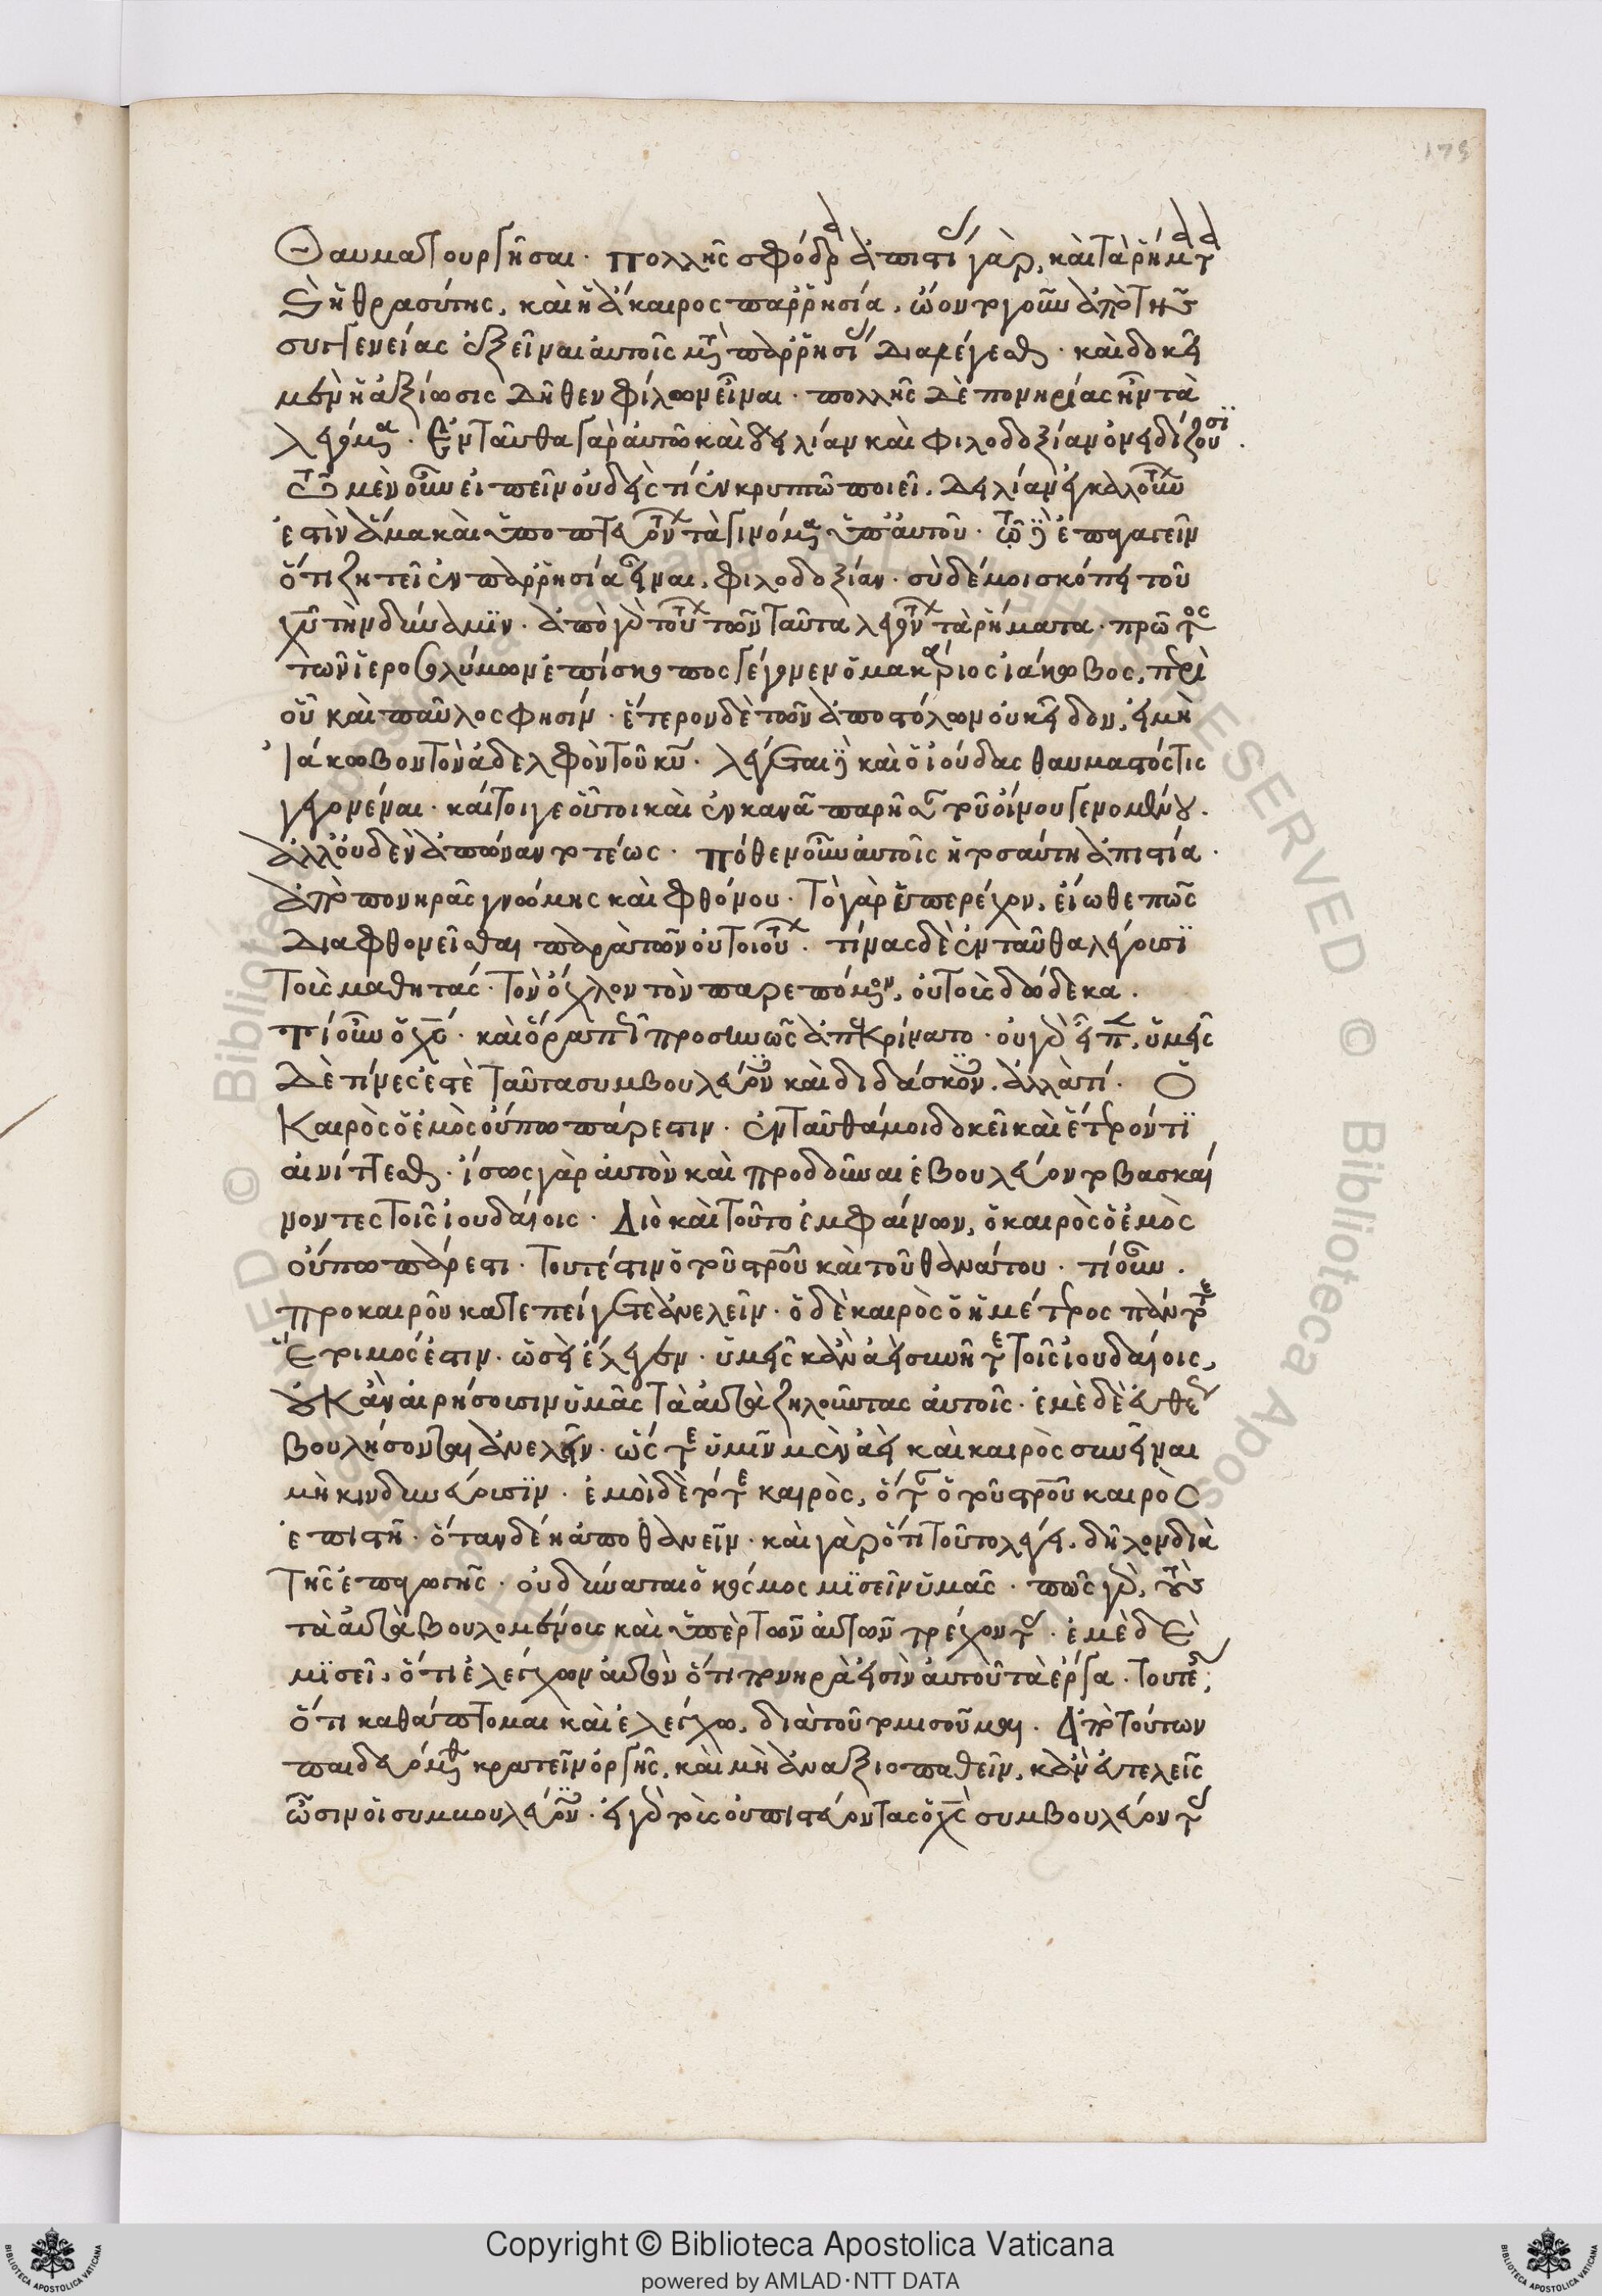 173
Θαυματουργῆσαι· πολλῆς σφόδρα ἀπιστίας γὰρ, καὶ τὰ ῥήματα
καὶ ἡ θρασύτης, καὶ ἡ ἄκαιρος παρρησία, ὤοντο γοῦν ἀπὸ τῆς
συγγενείας ἐξεῖναι αὐτοῖς μετὰ παρρησίας διαλέγεσθαι· καὶ δοκεῖ
μὲν ἡ ἀξίωσις δῆθεν φίλων εἶναι· πολλῆς δὲ πονηρίας ἦν τὰ
λεγόμενα. Ἐνταῦθα γὰρ αὐτῶ καὶ δειλίαν καὶ φιλοδοξίαν ὀνειδίζουσι.
Τὸ μὲν οὖν εἰπεῖν οὐδεὶς τί ἐν κρυπτῶ ποιεῖ, δειλίαν ἐγκαλούντων
ἐστὶν ἅμα καὶ ὑποπτευόντων τὰ γινόμενα ὑπ' αὐτοῦ· τῶ δὲ ἐπαγαγεῖν
ὅτι ζητεῖ ἐν παρρησία εἶναι, φιλοδοξίαν· σὺ δέ μοι σκόπει τοῦ
χυ τὴν δύναμιν· ἀπὸ γὰρ τούτων τῶν ταῦτα λεγόντων τὰ ῥήματα· πρῶτος
τῶν ἱεροσολύμων ἐπίσκοπος γέγονεν ὁ μακάριος ἰάκωβος, περὶ
οὗ καὶ παῦλος φησίν· ἕτερον δὲ τῶν ἀποστόλων οὐκ εἶδον, εἰ μὴ
ἰάκωβον τὸν ἀδελφὸν τοῦ κυ. λέγεται δὲ καὶ ὁ ἰούδας θαυμαστός τις
γεγονέναι· καίτοιγε οὗτοι καὶ ἐν κανᾶ παρῆσαν τοῦ οἴνου γενομένου.
ἀλλ' οὐδὲν ἀπώναντο τέως· πόθεν οὖν αὐτοῖς ἡ τοσαύτη ἀπιστία·
ἀπὸ πονηρᾶς γνώμης καὶ φθόνου· Τὸ γὰρ ὑπερέχον, εἴωθε πῶς
διαφθονεῖσθαι παρὰ τῶν οὐ τοιούτων. τίνας δὲ ἐνταῦθα λέγουσι
τοὺς μαθητάς· τὸν ὄχλον τὸν παρεπόμενον, οὐ τοὺς δώδεκα.
Τί οὖν ὁ χς· καὶ ὅρα τί προσηνῶς ἀπεκρίνατο· οὐ γὰρ εἶπεν, ὑμεῖς
δὲ τίνες ἐστὲ ταῦτα συμβουλεύοντες καὶ διδάσκοντες. ἀλλὰ τί. Ὁ
Καιρὸς ὁ ἐμὸς οὔπω πάρεστιν. ἐνταῦθά μοι δοκεῖ καὶ ἕτερόν τι
αἰνίττεσθαι. ἴσως γὰρ αὐτὸν καὶ προδοῦναι ἐβουλεύοντο βασκαί
νοντες τοῖς ἰουδαίοις. Διὸ καὶ τοῦτο ἐμφαίνων, ὁ καιρὸς ὁ ἐμὸς
οὔπω πάρεστι. τουτέστιν ὁ τοῦ στρου καὶ τοῦ θανάτου. τί οὖν.
προ καιροῦ κατεπείγετε ἀνελεῖν. ὁ δὲ καιρὸς ὁ ἡμέτερος πάντοτε
ἕτοιμός ἐστιν. ὡσεὶ ἔλεγεν. ὑμεῖς κἂν ἀεὶ συνῆτε τοῖς ἰουδαίοις,
οὐκ ἀναιρήσουσιν ὑμᾶς τὰ αὐτὰ ζηλοῦντας αὐτοῖς. ἐμὲ δὲ εὐθέως
βουλήσονται ἀνελεῖν. ὥστε ὑμῖν μὲν ἀεὶ καὶ καιρὸς συνεῖναι
μὴ κινδυνεύουσιν. ἐμοὶ δὲ τότε καιρὸς, ὅταν ὁ τοῦ στρου καιρὸς
ἐπιστῆ. ὅταν δέη ἀποθανεῖν. καὶ γὰρ ὅτι τοῦτο λέγει, δῆλον διὰ
τῆς ἐπαγωγῆς. οὐ δύναται ὁ κόσμος μισεῖν ὑμᾶς. πῶς γὰρ, τοὺς
τὰ αὐτὰ βουλομένους καὶ ὑπὲρ τῶν αὐτῶν τρέχοντας. ἐμὲ δὲ
μισεῖ, ὅτι ἐλέγχων αὐτὸν ὅτι πονηρὰ εἰσὶν αὐτοῦ τὰ ἔργα. τουτέστιν,
ὅτι καθάπτομαι καὶ ἐλέγχω, διὰ τοῦτο μισοῦμαι. Ἀπὸ τούτων
παιδευόμεθα κρατεῖν ὀργῆς, καὶ μὴ ἀναξιοπαθεῖν, κἂν εὐτελεῖς
ὦσιν οἱ συμβουλεύοντες. εἰ γὰρ τοὺς οὐ πιστεύοντας ὁ χς συμβουλεύοντας
Copyright © Biblioteca Apostolica Vaticana
powered by AMLAD·NTT DATA